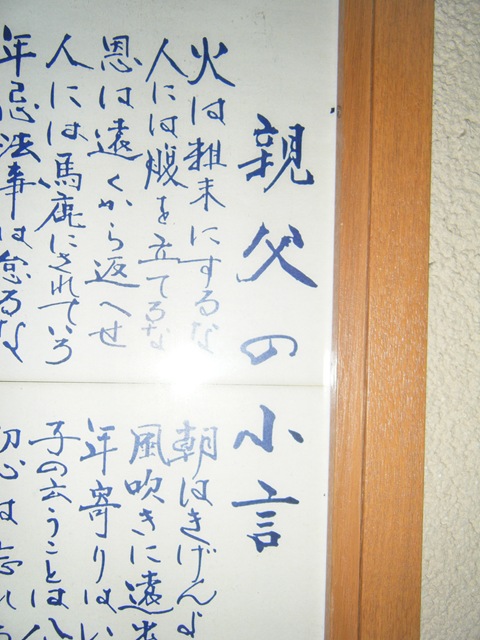 親父の小言
火は粗末にするな
人には腹を立てるな
恩は遠くから返へせ
人には馬鹿にされていろ
年忌法事は怠るな
朝はきげんよ
風吹きに遠出
年寄りはい
子の云うことは八
初心は忘れ